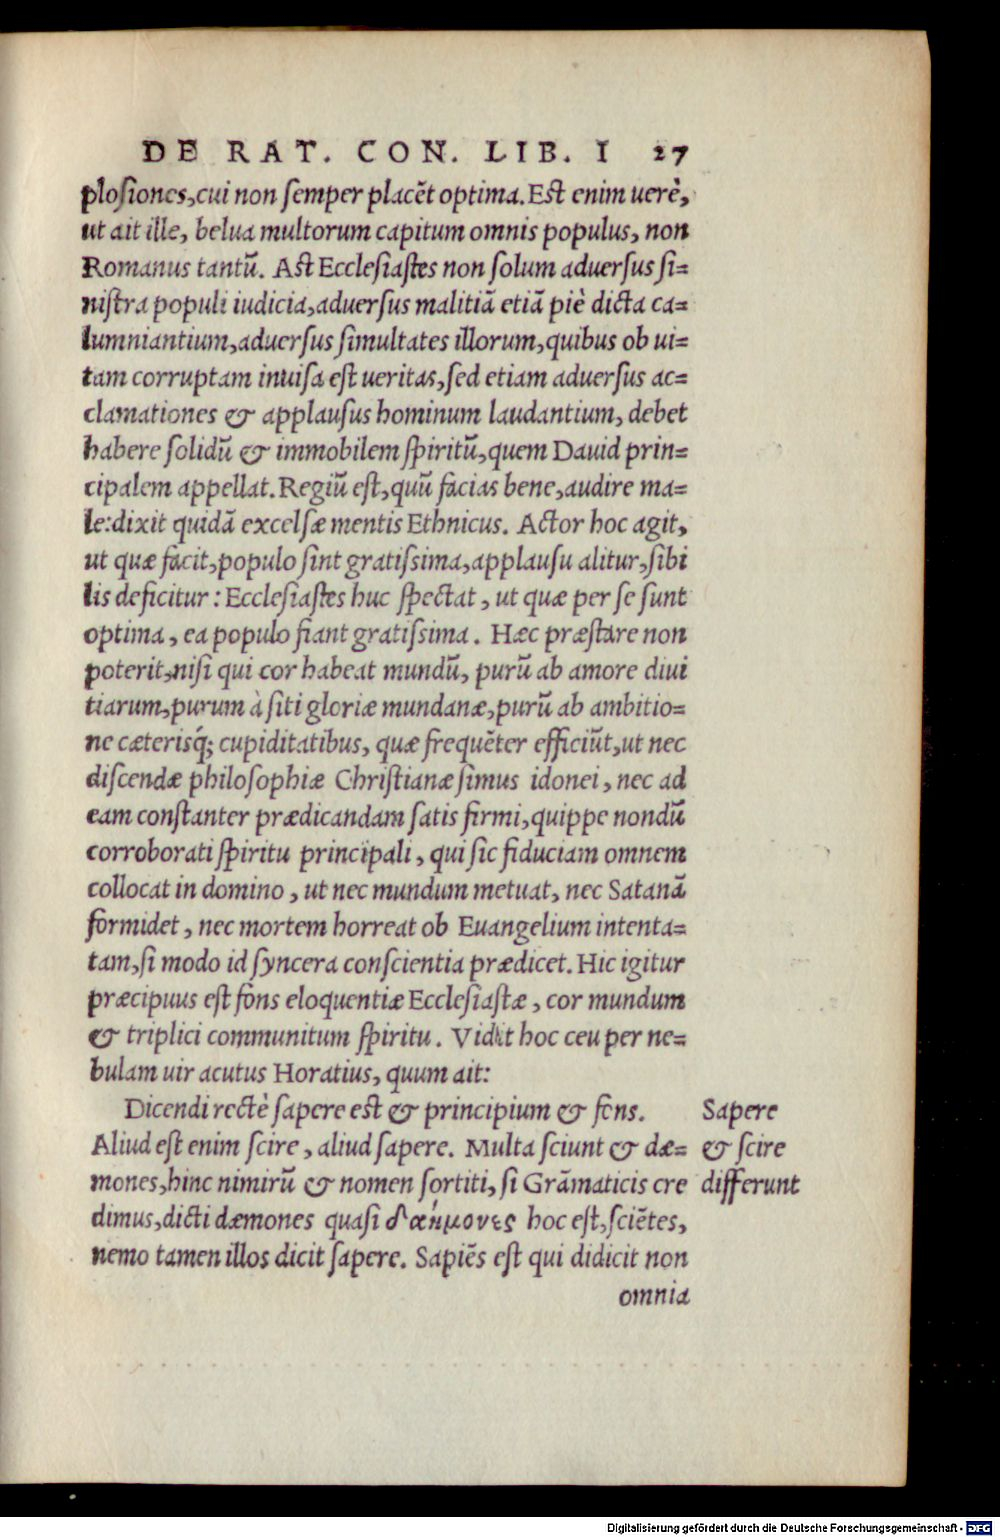 DE RAT. CON. LIB. I 27
plosiones, cui non semper placẽt optima. Est enim uerè,
ut ait ille, belua multorum capitum omnis populus, non
Romanus tantũ. Ast Ecclesiastes non solum aduersus si=
nistra populi iudicia, aduersus malitiã etiã piè dicta ca=
lumniantium, aduersus simultates illorum, quibus ob ui=
tam corruptam inuisa est ueritas, sed etiam aduersus ac=
clamationes & applausus hominum laudantium, debet
habere solidũ & immobilem spiritũ, quem Dauid prin=
cipalem appellat. Regiũ est, quũ facias bene, audire ma=
le: dixit quidã excelsæ mentis Ethnicus. Actor hoc agit,
ut quæ facit, populo sint gratissima, applausu alitur, sibi
lis deficitur: Ecclesiastes huc spectat, ut quæ per se sunt
optima, ea populo fiant gratissima. Hæc præstare non
poterit, nisi qui cor habeat mundũ, purũ ab amore diui
tiarum, purum à siti gloriæ mundanæ, purũ ab ambitio=
ne cæterisq́; cupiditatibus, quæ frequẽter efficiũt, ut nec
discendæ philosophiæ Christianæ simus idonei, nec ad
eam constanter prædicandam satis firmi, quippe nondũ
corroborati spiritu principali, qui sic fiduciam omnem
collocat in domino, ut nec mundum metuat, nec Satanã
formidet, nec mortem horreat ob Euangelium intenta=
tam, si modo id syncera conscientia prædicet. Hic igitur
præcipuus est fons eloquentiæ Ecclesiastæ, cor mundum
& triplici communitum spiritu. Vidit hoc ceu per ne=
bulam uir acutus Horatius, quum ait:
Dicendi rectè sapere est & principium & fons.
Aliud est enim scire, aliud sapere. Multa sciunt & dæ=
mones, hinc nimirũ & nomen sortiti, si Grãmaticis cre
dimus, dicti dæmones quasi δαήμονες hoc est, sciẽtes,
nemo tamen illos dicit sapere. Sapiẽs est qui didicit non
omnia
Sapere
& scire
differunt
Digitalisierung gefördert durch die Deutsche Forschungsgemeinschaft - DFG